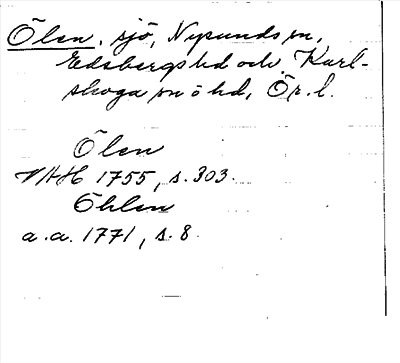 Ölen, sjö, Nysunds sn,
Edsbergs hd och Karl-
skoga sn o hd, Ör. l.
Ölen
VAH 1755, s. 303.
Öhlen
a.a. 1771, s. 8